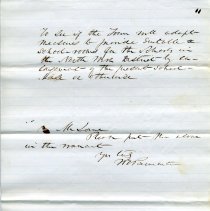 To See if the Town will adopt
measures to provide suitable
School-rooms for the Schools in
the North West District by en-
largement of the present School-
House or otherwise
Mr Lane
Please put the above
in the warrant
Yrs truly